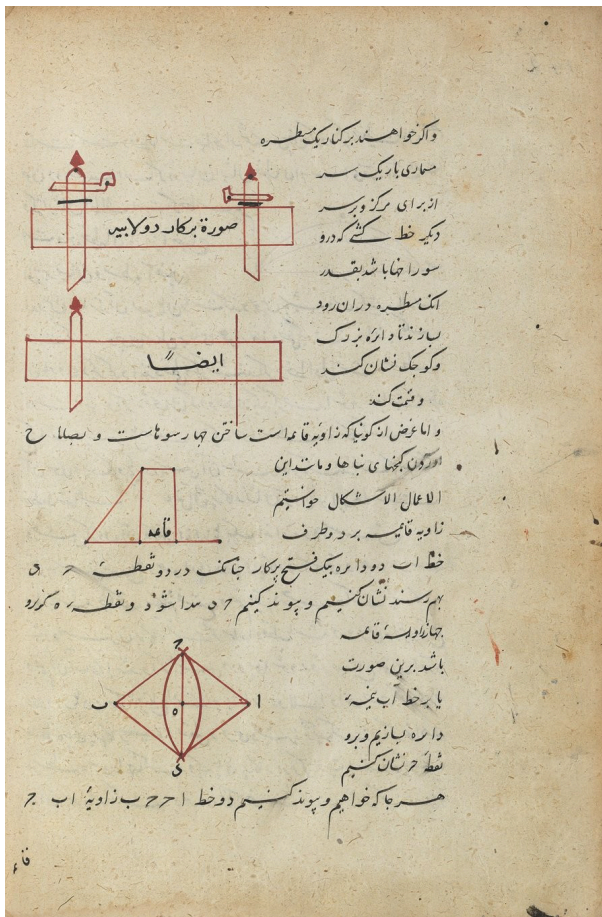 و اگر خواهند بر کنار یک مسطره
مسماری باریک سر
از برای مرکز و بر سر
دیگر خط کشی که درو
سوراخها باشد بقدر
انک مسطره دران رود
بسازند تا دایره بزرک
و کوچک نشان کند
و قمت کند
صورة برکار دولابید
ایضا
و اما غرض از کونیا که زاویه قاعه است ساختن چهار سوهاست و
اوردن کنجهای بناها و مانند این
الاعمال الاشکال خواستیم
زاویه قایمه بر دو طرف
قاعه
خط اب دو دایره بیک فتح پرکار چنانک در دو نقطه ح ه
بهم رسند نشان کنیم و پیوند کنیم ح ه شود و نقطه ه
چهار زاویه قاعه
باشد برین صورت
یا بر خط اب نیمه
دایره بسازیم و برو
نقطه ح نشان کنیم
ح
ا
ب
ه
S
هر جا که خواهیم و پیوند کنیم دو خط ا ح ح ب زاویة اب ح
قاء